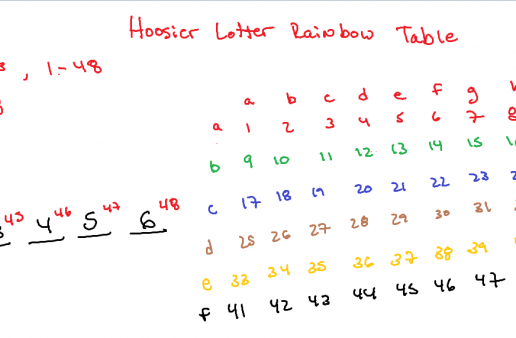 Hoosier Lotter Rainbow Table
, 1-48
a b c d e f g
a 1 2 3 4 5 6 7 8
b 9 10 11 12 13 14 15
c 17 18 19 20 21 22 23
d 25 26 27 28 29 30 31
45 4 46 5 47 6 48
e 33 34 35 36 37 38 39
f 41 42 43 44 45 46 47